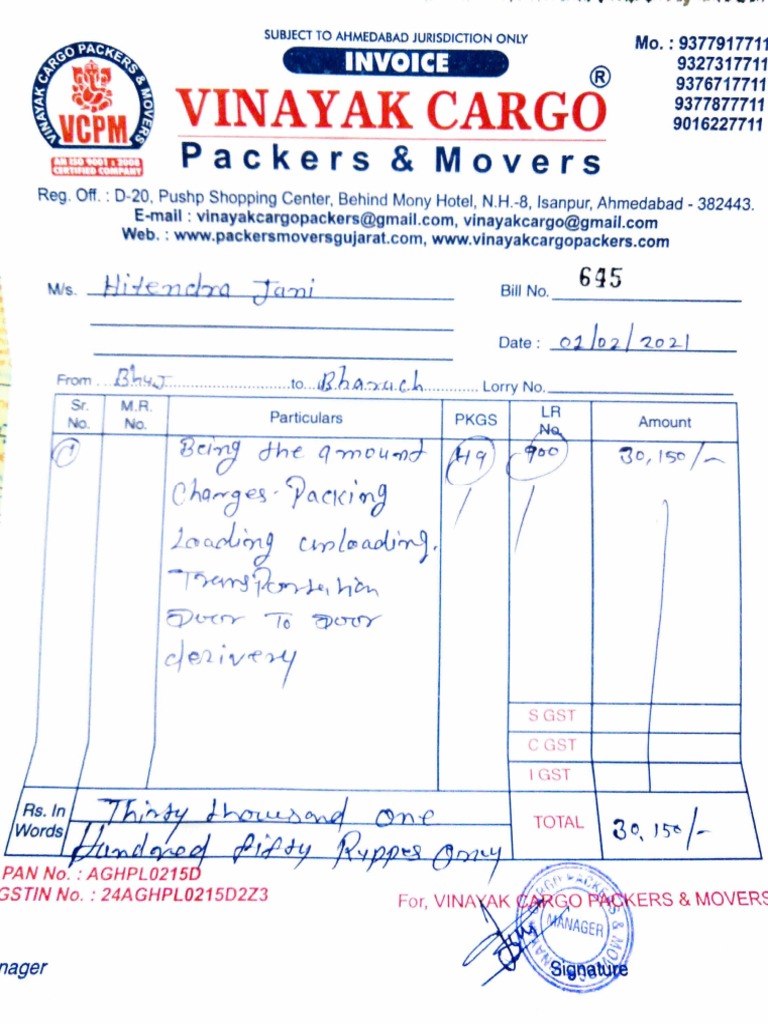 SUBJECT TO AHMEDABAD JURISDICTION ONLY
INVOICE
Mo. : 9377917711
9327317711
9376717711
9377877711
9016227711
VINAYAK CARGO PACKERS & MOVERS
VCPM
AN ISO 9001 : 2008
CERTIFIED COMPANY
VINAYAK CARGO ®
Packers & Movers
Reg. Off. : D-20, Pushp Shopping Center, Behind Mony Hotel, N.H.-8, Isanpur, Ahmedabad - 382443.
E-mail : vinayakcargopackers@gmail.com, vinayakcargo@gmail.com
Web. : www.packersmoversgujarat.com, www.vinayakcargopackers.com
M/s. Hitendra Jani
Bill No. 645
Date : 02/02/2021
From Bhuj to Bharuch Lorry No.
Sr. No. M.R. No. Particulars PKGS LR No. Amount
Being the amount 49 900 30,150/-
Charges. Packing
Loading unloading.
Transportation
Door To Door
derivery
S GST
C GST
I GST
Rs. In Words Thirty thousand one
Hundred fifty Ruppes Only
TOTAL 30,150/-
PAN No. : AGHPL0215D
GSTIN No. : 24AGHPL0215D2Z3
For, VINAYAK CARGO PACKERS & MOVERS
MANAGER
nager
Signature